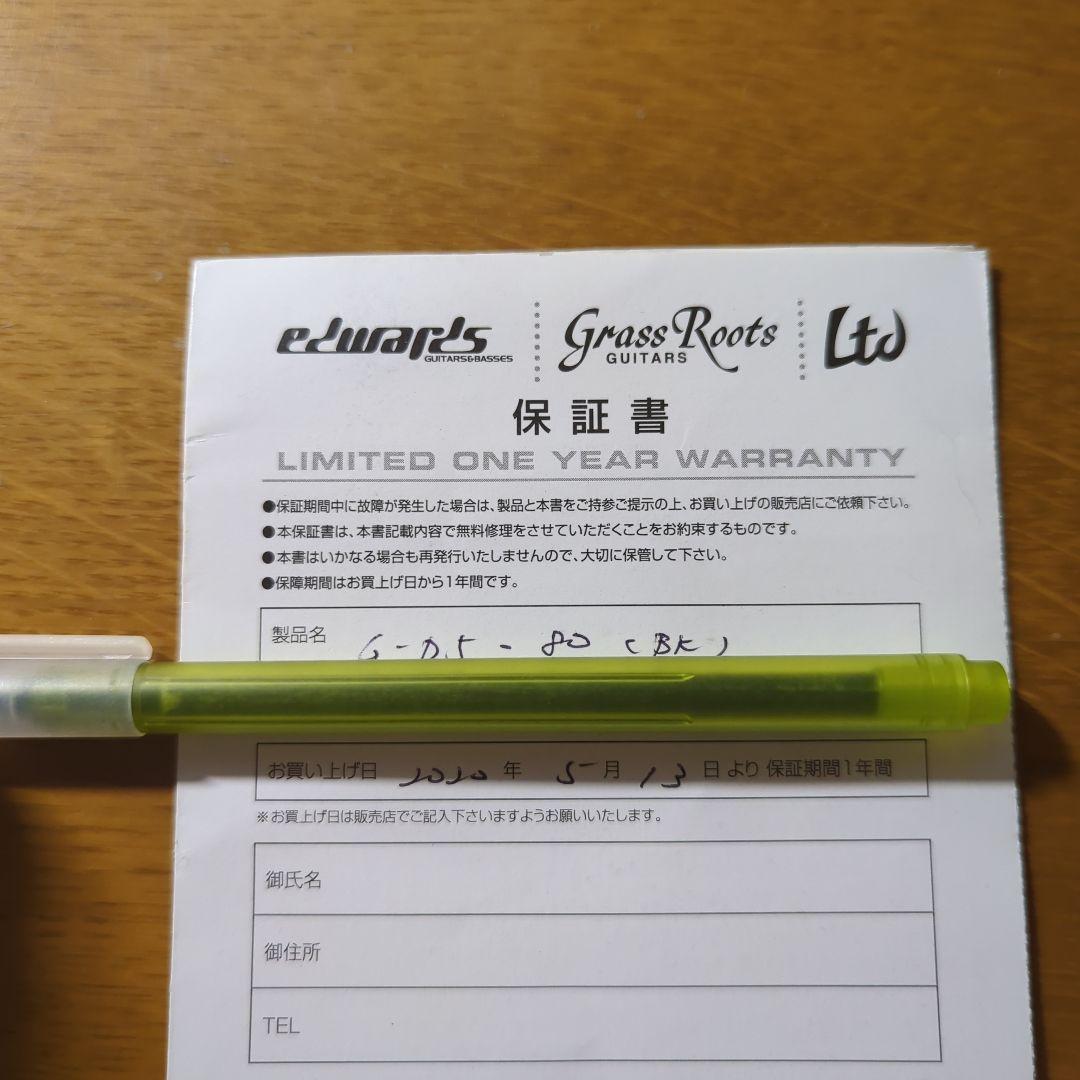 edwards GUITARS&BASSES Grass Roots GUITARS Ltd
保証書
LIMITED ONE YEAR WARRANTY
●保証期間中に故障が発生した場合は、製品と本書をご持参ご提示の上、お買い上げの販売店にご依頼下さい。
●本保証書は、本書記載内容で無料修理をさせていただくことをお約束するものです。
●本書はいかなる場合も再発行いたしませんので、大切に保管して下さい。
●保障期間はお買上げ日から1年間です。
製品名 G-DS-80 (BK)
お買い上げ日 2020 年 5 月 13 日 より 保証期間1年間
※お買上げ日は販売店でご記入下さいますようお願いいたします。
御氏名
御住所
TEL